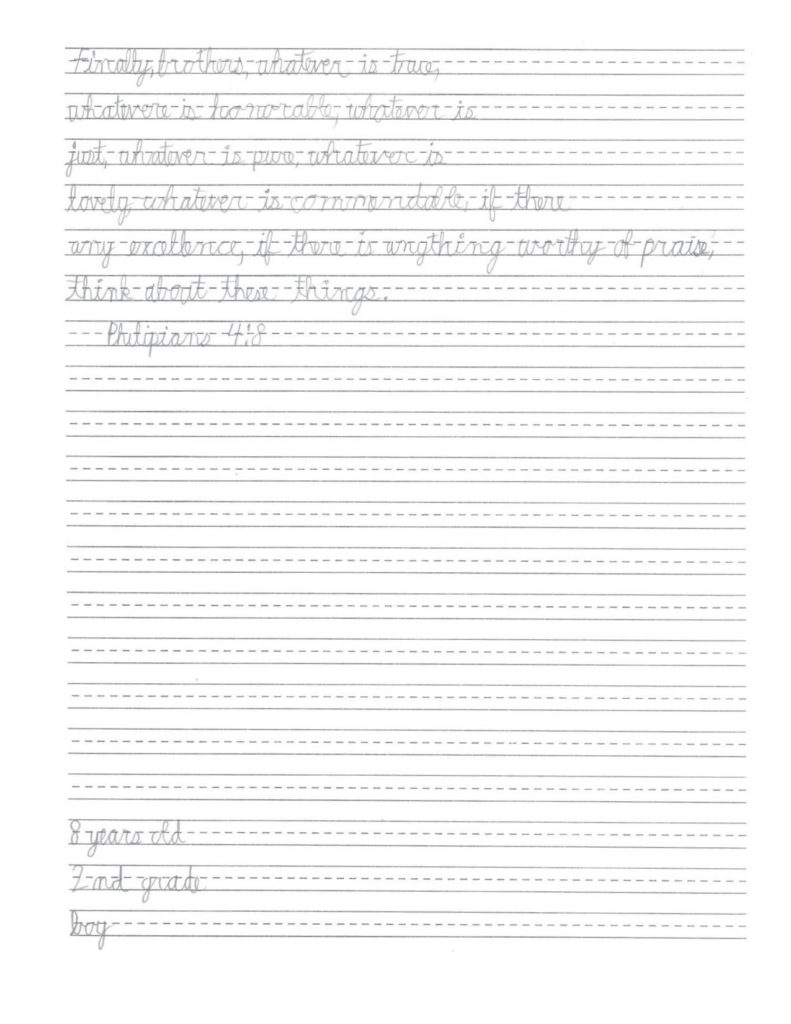 Finally, brothers, whatever is true,
whatevere is honorable, whatever is
just, whatever is pure, whatever is
lovely, whatever is commendable, if there
any excellence, if there is anything worthy of praise,
think about these things.
Philipians 4:8
8 years old
2nd grade
boy